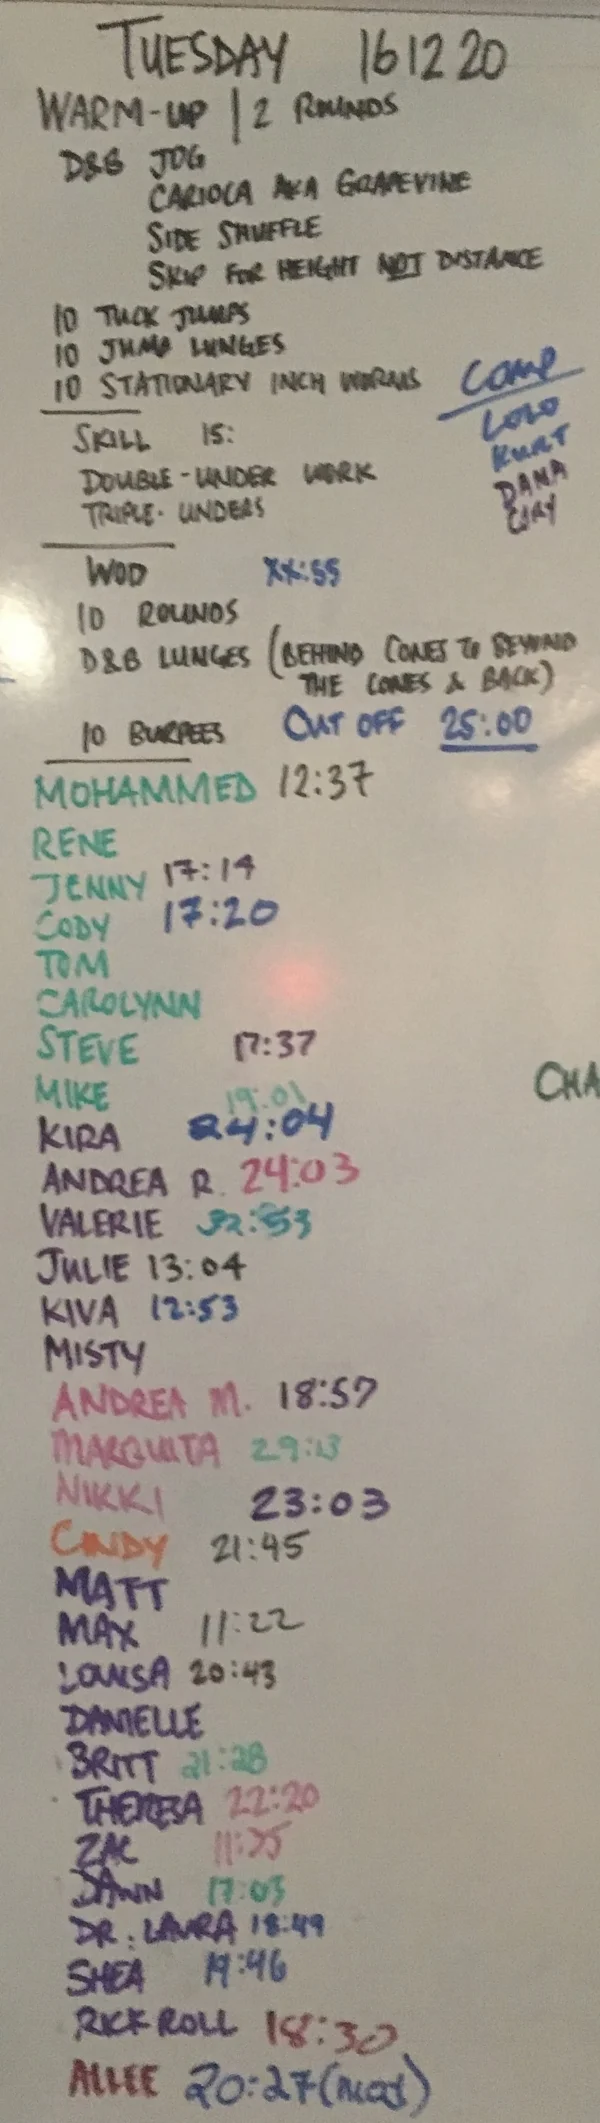 TUESDAY 161220
WARM-UP | 2 ROUNDS
D&B JOG
CARIOCA AKA GRAPEVINE
SIDE SHUFFLE
SKIP FOR HEIGHT NOT DISTANCE
10 TUCK JUMPS
10 JUMP LUNGES
10 STATIONARY INCH WORMS
COMP
LOLO
KURT
DANA
CORY
SKILL 15:
DOUBLE-UNDER WORK
TRIPLE-UNDERS
WOD XX:55
10 ROUNDS
D&B LUNGES (BEHIND CONES TO BEYOND
THE CONES & BACK)
10 BURPEES CUT OFF 25:00
MOHAMMED 12:37
RENE
JENNY 17:14
CODY 17:20
TOM
CAROLYNN
STEVE 17:37
MIKE 19:01
KIRA 24:04
CHA
ANDREA R. 24:03
VALERIE
JULIE 13:04
KIVA 12:53
MISTY
ANDREA M. 18:57
MARQUITA
NIKKI 23:03
CINDY 21:45
MATT
MAX 11:22
LOUISA 20:43
DANIELLE
BRITT 21:28
THERESA 22:20
ZAC
DAWN 17:03
DR. LAURA 18:49
SHEA 19:46
RICK ROLL 18:30
ALLEE 20:27